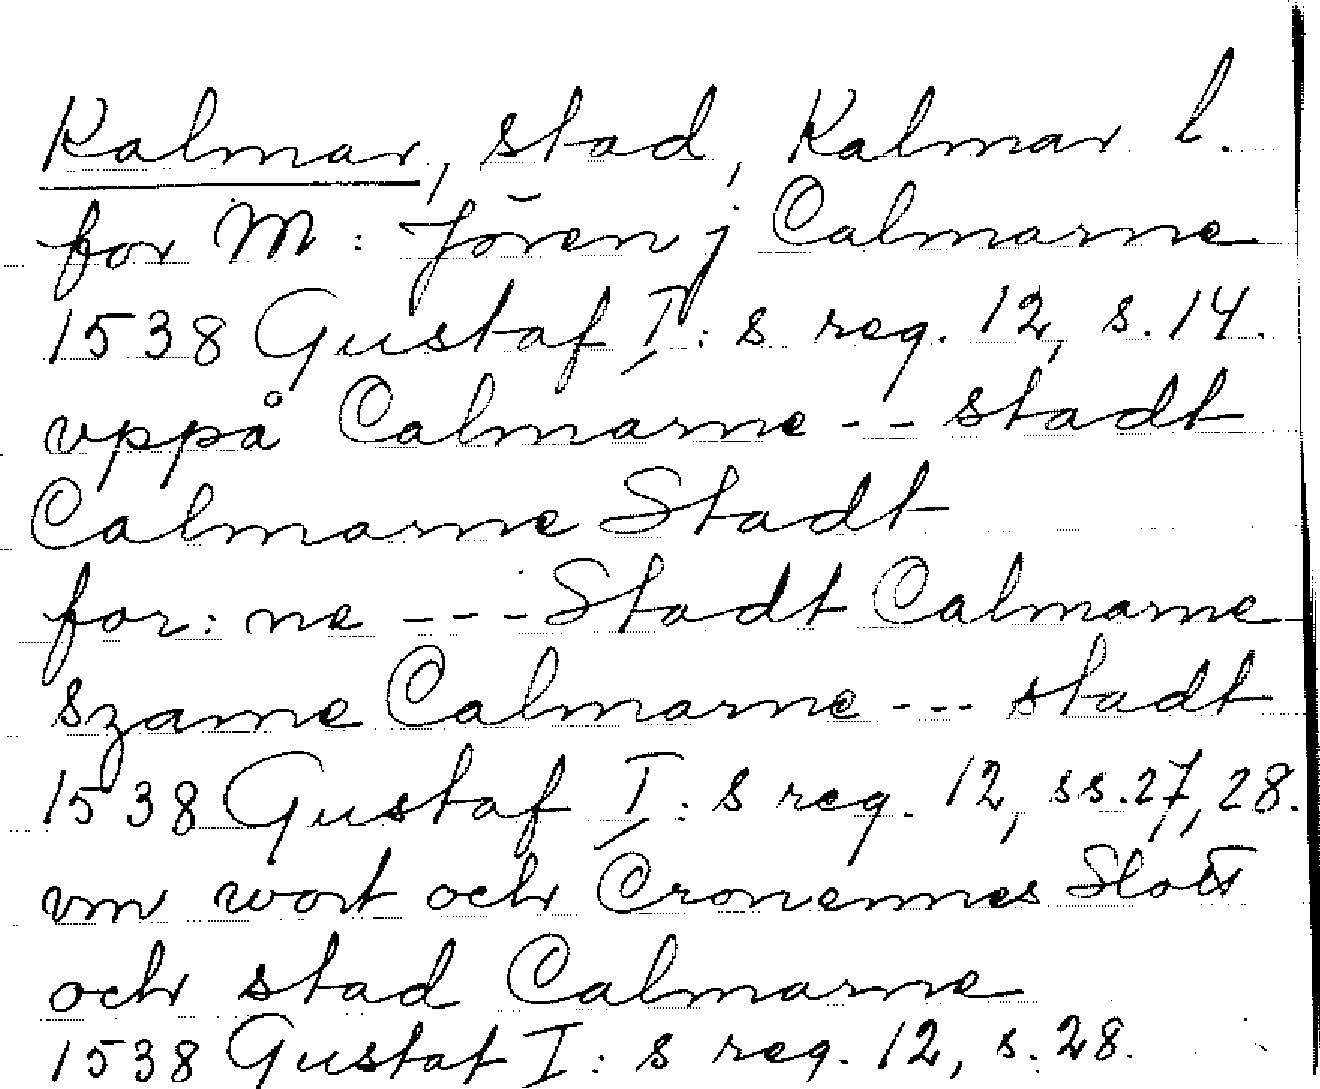 Kalmar, stad, Kalmar l.
for M: Jören j Calmarne
1538 Gustaf I:s reg. 12, s. 14.
vppå Calmarne -- stadt
Calmarne Stadt
for:ne --- Stadt Calmarne
szame Calmarne --- stadt
1538 Gustaf I:s reg. 12, ss. 27, 28.
vm wort och Cronennes Slott
och stad Calmarne
1538 Gustaf I:s reg. 12, s. 28.